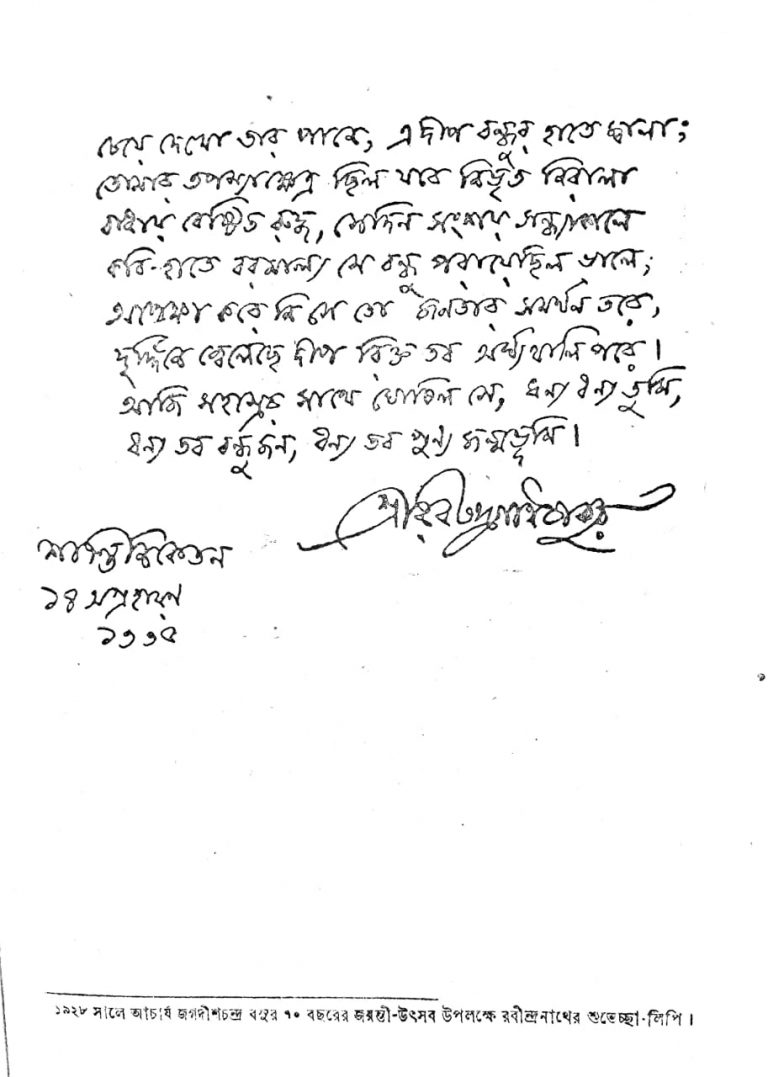 চেয়ে দেখো তার পানে, এ দীপ বন্ধুর হাতে জ্বালা;
তোমার তপস্যাক্ষেত্র ছিল যবে নিভৃত নিরালা
বাধায় বেষ্টিত রুদ্ধ, সেদিন সংশয় সন্ধ্যাকালে
কবি-হাতে বরমাল্য সে বন্ধু পরায়েছিল ভালে;
অপেক্ষা করে নি সে তো জনতার সমর্থন তরে,
দুর্দ্দিনে জ্বেলেছে দীপ রিক্ত তব অর্ঘ্যথালি পরে।
আজি সহস্রের সাথে ঘোষিল সে, ধন্য ধন্য তুমি,
ধন্য তব বন্ধুজন, ধন্য তব পুণ্য জন্মভূমি।
শ্রীরবীন্দ্রনাথ ঠাকুর
শান্তিনিকেতন
১৪ অগ্রহায়ণ
১৩৩৫
১৯২৮ সালে আচার্য জগদীশচন্দ্র বসুর ৭০ বছরের জয়ন্তী-উৎসব উপলক্ষে রবীন্দ্রনাথের শুভেচ্ছা-লিপি।